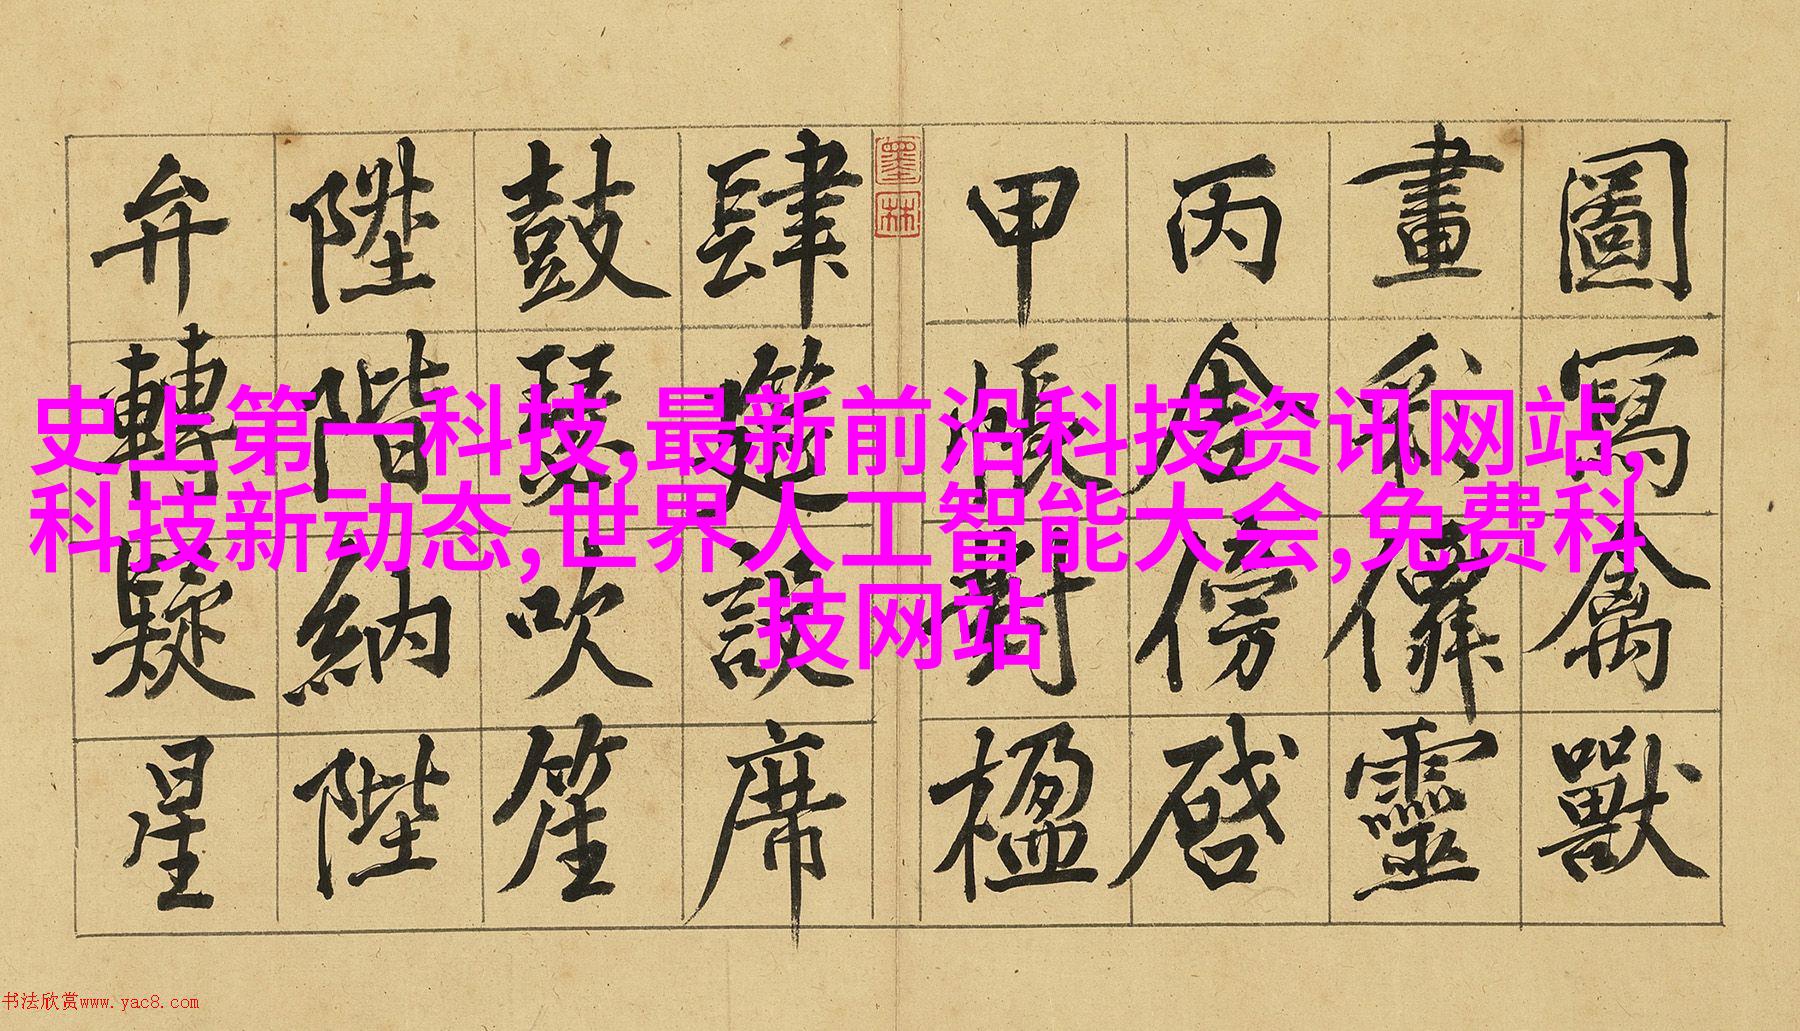 圖寫禽獸
畫彩僊靈
丙舍傍啓
甲帳對楹
墨林
肆筵設席
鼓瑟吹笙
陞階納陛
弁轉疑星
史上第一科技,最新前沿科技资讯网站,
科技新动态,世界人工智能大会,免费科
技网站
书法欣赏www.yac8.com